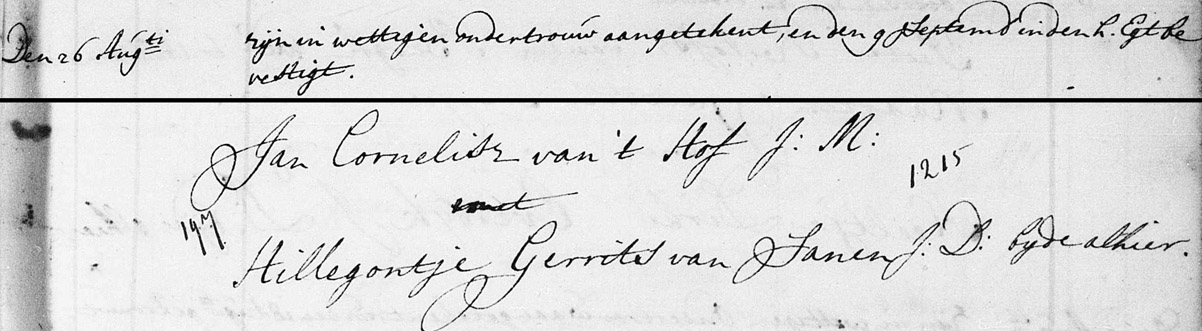 Den 26 Augti zijn in wettigen ondertrouw aangetekent, en den 9 Septemb in den h. Egt be
vestigt.
Jan Cornelisz van't Hof J: M:
1215
met
197
Hillegontje Gerrits van Sanen J: D: byde alhier.